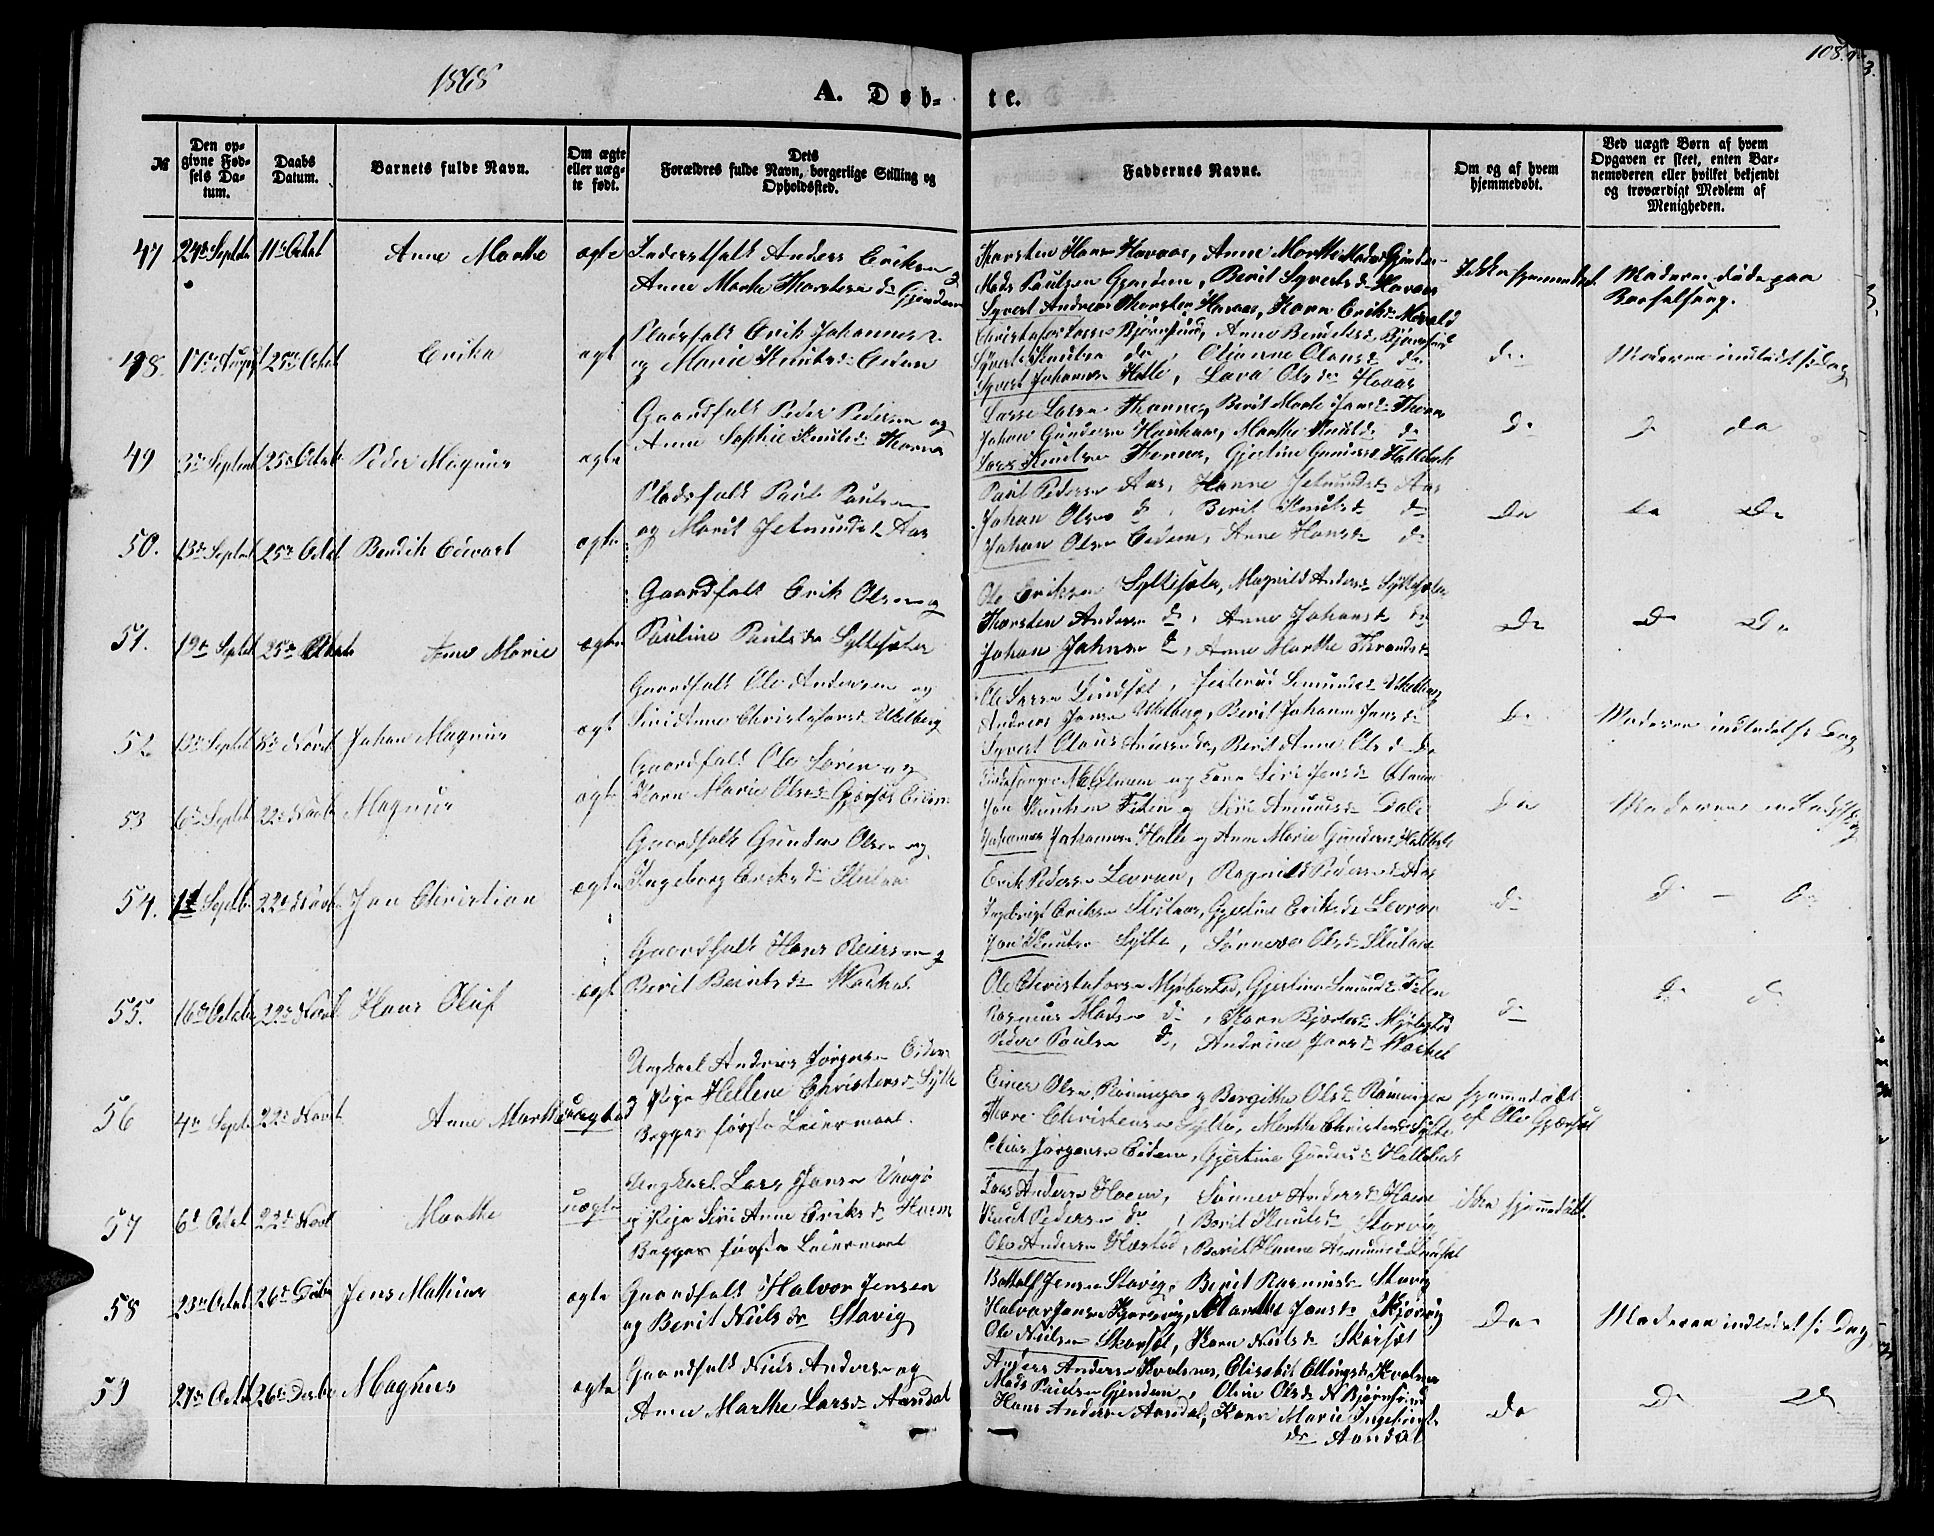 1868
A. Døb-
te.
108.
№
Den op-
givne Fød-
sels Da-
tum.
Daabs
Datum.
Barnets fulde Navn.
Om ægte
eller uæg-
te født.
Dets
Forældres fulde Navn, borgerlige Stilling og
Opholdssted.
Faddernes Navne.
Om og af hvem
hjemmedøbt.
Ved uægte Børn af hvem
Opgaven er skeet, enten Bar-
nemoderen eller hvilket bekjendt
og troværdigt Medlem af
Menigheden.
47 24de Septbr 11te Octbr Anne Marthe ægte
Anders Eriksen
Anne Marthe Thorstensdr Gjendem
Thorsten Hansen Havaas, Anne Marthe Madsdr Gjendem
Mads Paulsen Gjendem, Berit Syvertsdr Havaas
Syvert Andreas Thorstensen Havaas, Karen Eriksdr
Ikke hjemmedøbt. Moderen døde paa
Barselseng.
48. 17de August 25de Octbr Erika ægte
Pladsfolk Erik Johannesen
og Marie Knutsdr Eidem
Christofer Larsen Bjørnsund, Anne Bendiksdr Bjørnsund
Syvert Knutsen do, Oljanne Olausdr do
Syvert Johansen Halle, Lava Olsdr Havaas
do Moderen indledet s: Dag
49 3de Septembr 25de Octbr Peder Magnus ægte
Gaardfolk Peder Pedersen og
Anne Sophie Knutsdr Thornes
Lasse Larsen Thornes, Berit Marte Jonsdr Thornes
Johan Gundersen Haukaas, Marthe Knutsdr do
Lars Knutsen Thornes, Gjertine Gundersdr Hallebak
do do do
50. 13de Septbr 25de Octbr Bendik Edvart ægte
Pladsfolk Paul Paulsen
og Marit Jetmundsdr Aas
Paul Pedersen Aas, Hanne Jetmundsdr Aas
Johan Olsen do, Berit Knutsdr do
Johan Olsen Eidem, Anne Hansdr do
Do do Do
51. 19de Septbr 25de Octbr Anne Marie ægte
Gaardfolk Erik Olsen og
Pauline Paulsdr Syltesæter
Ole Eriksen Syltesæter, Magnild Andersdr Syltesæter
Thorsten Andersen do, Anne Johansdr do
Johan Johnsen do, Anne Marthe Throndsdr
Do Do Do
52 13de Septbr 8de Novbr Johan Magnus ægte
Gaardfolk Ole Andersen og
Siri Anne Christofersdr Ukelberg
Ole Larsen Lindset,
Andreas Jonsen Ukelberg, Berit Johanne Jonsdr
Syvert Olaus Andersen do, Berit Anne Olsdr do
do Moderen indledet s: Dag
53 6te Septbr 22de Novbr Magnus ægte
Gaardfolk Ole Sørensen og
Karen Marie Olsdr Gjersæt Eidem
Jon Knutsen Feten og Siri Amundsdr Dale
Johannes Johannesen Halle og Anne Marie Gundersdr Hallebak
Do Moderen indledet s: Dag
54. 11 Septbr 22de Novbr Jon Christian ægte
Gaardfolk Gunder Olsen og
Ingeborg Eriksdr Skutaas
Erik Pedersen Levran, Ragnild Pedersdr Aas
Ingebrigt Eriksen Skutaas, Gjertine Eriksdr Levran
Jon Knutsen Sylte, Sønneva Olsdr Skutaas
do do - do
55. 16de Octbr 22de Novbr Hans Oluf ægte
Gaardfolk Hans Reiersen og
Berit Berntsdr Varhol
Ole Christofersen Myrbostad, Gjertine Amundsdr Feten
Rasmus Madsen do, Karen Bjørnsdr Myrbostad
Peder Paulsen do, Andrine Jonsdr Varhol
do do do
56 4de Septbr 22de Novbr Anne Marthe uægte
Ungkarl Andreas Jørgensen Eidem
og Pige Hellene Christensdr Sylte
Begges første Leiermaal.
Einer Olsen Rønningen og Bergitte Olsdr Rønningen
Thore Christensen Sylte, Marthe Christensdr Sylte
Elias Jørgensen Eidem, Gjertine Gundersdr Hallebak
hjemmedøbt
af Ole Gjersæt
57 6te Octbr 22de Novbr Marthe uægte
Ungkarl Lars Jonsen Vaagø
og Pige Siri Anne Eriksdr Haem
Begges første Leiermaal
Lars Andersen Haem, Sønnev Andersdr Haem
Knut Pedersen do, Berit Knutsdr Storvig
Ole Andersen Hæstad, Berit Hanne Amundsdr Lindset
ikke hjemmedøbt.
58 23de Octbr 26de Decbr Jens Mathias ægte
Gaardfolk Halvor Jensen
og Berit Nielsdr Stavig
Bottolf Jensen Stavig, Berit Rasmusdr Stavig
Halvor Jonsen Kjørsvig, Marthe Jonsdr Kjørsvig
Ole Nielsen Skarset, Karen Nielsdr Skarset
Do Moderen indledet s: Dag
59 27de Octbr 26de Decbr Magnus ægte
Gaardfolk Niels Andersen og
Anne Marthe Larsdr Aandal
Anders Andersen Kvalsnes, Elisabet Ellingsdr Kvalsnes
Mads Paulsen Gjendem, Oline Olsdr Bjørnsund
Hans Andersen Aandal, Karen Marie Ingebrigts
dr Aandal
Do Do Do